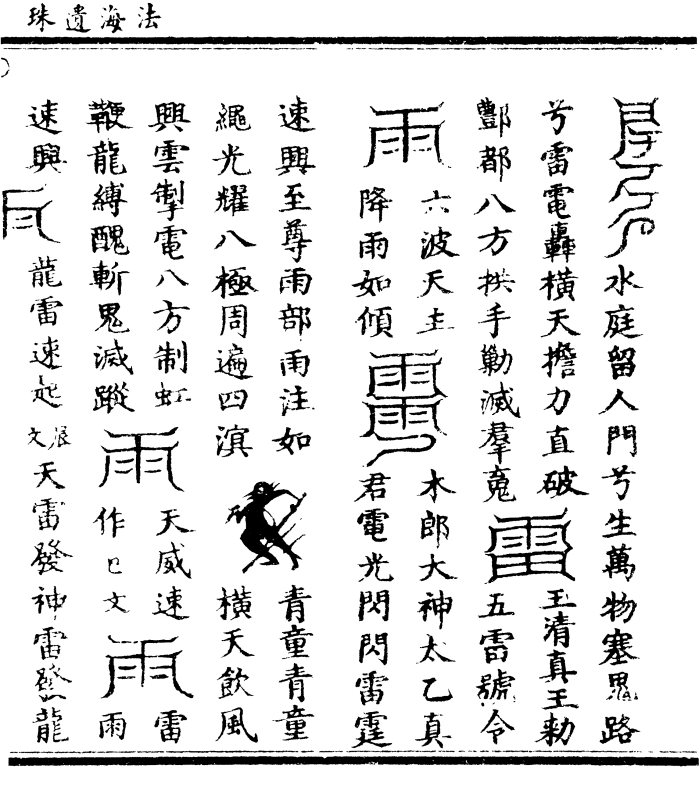 法海遺珠
水庭留人門兮生萬物塞鬼路
兮雷電轟橫天擔力直破
酆都八方拱手勦滅羣寃
雷
玉清真王勑
五雷號令
雨
六波天主
降雨如傾
木郎大神太乙真
君電光閃閃雷霆
速興至尊雨部雨注如
繩光耀八極周遍四溟
青童青童
橫天飲風
興雲掣電八方制虹
鞭龍縛醜斬鬼滅蹤
雨
天威速
作已文
雨
雷
雨
速興
龍雷速起
文
天雷發神雷發龍